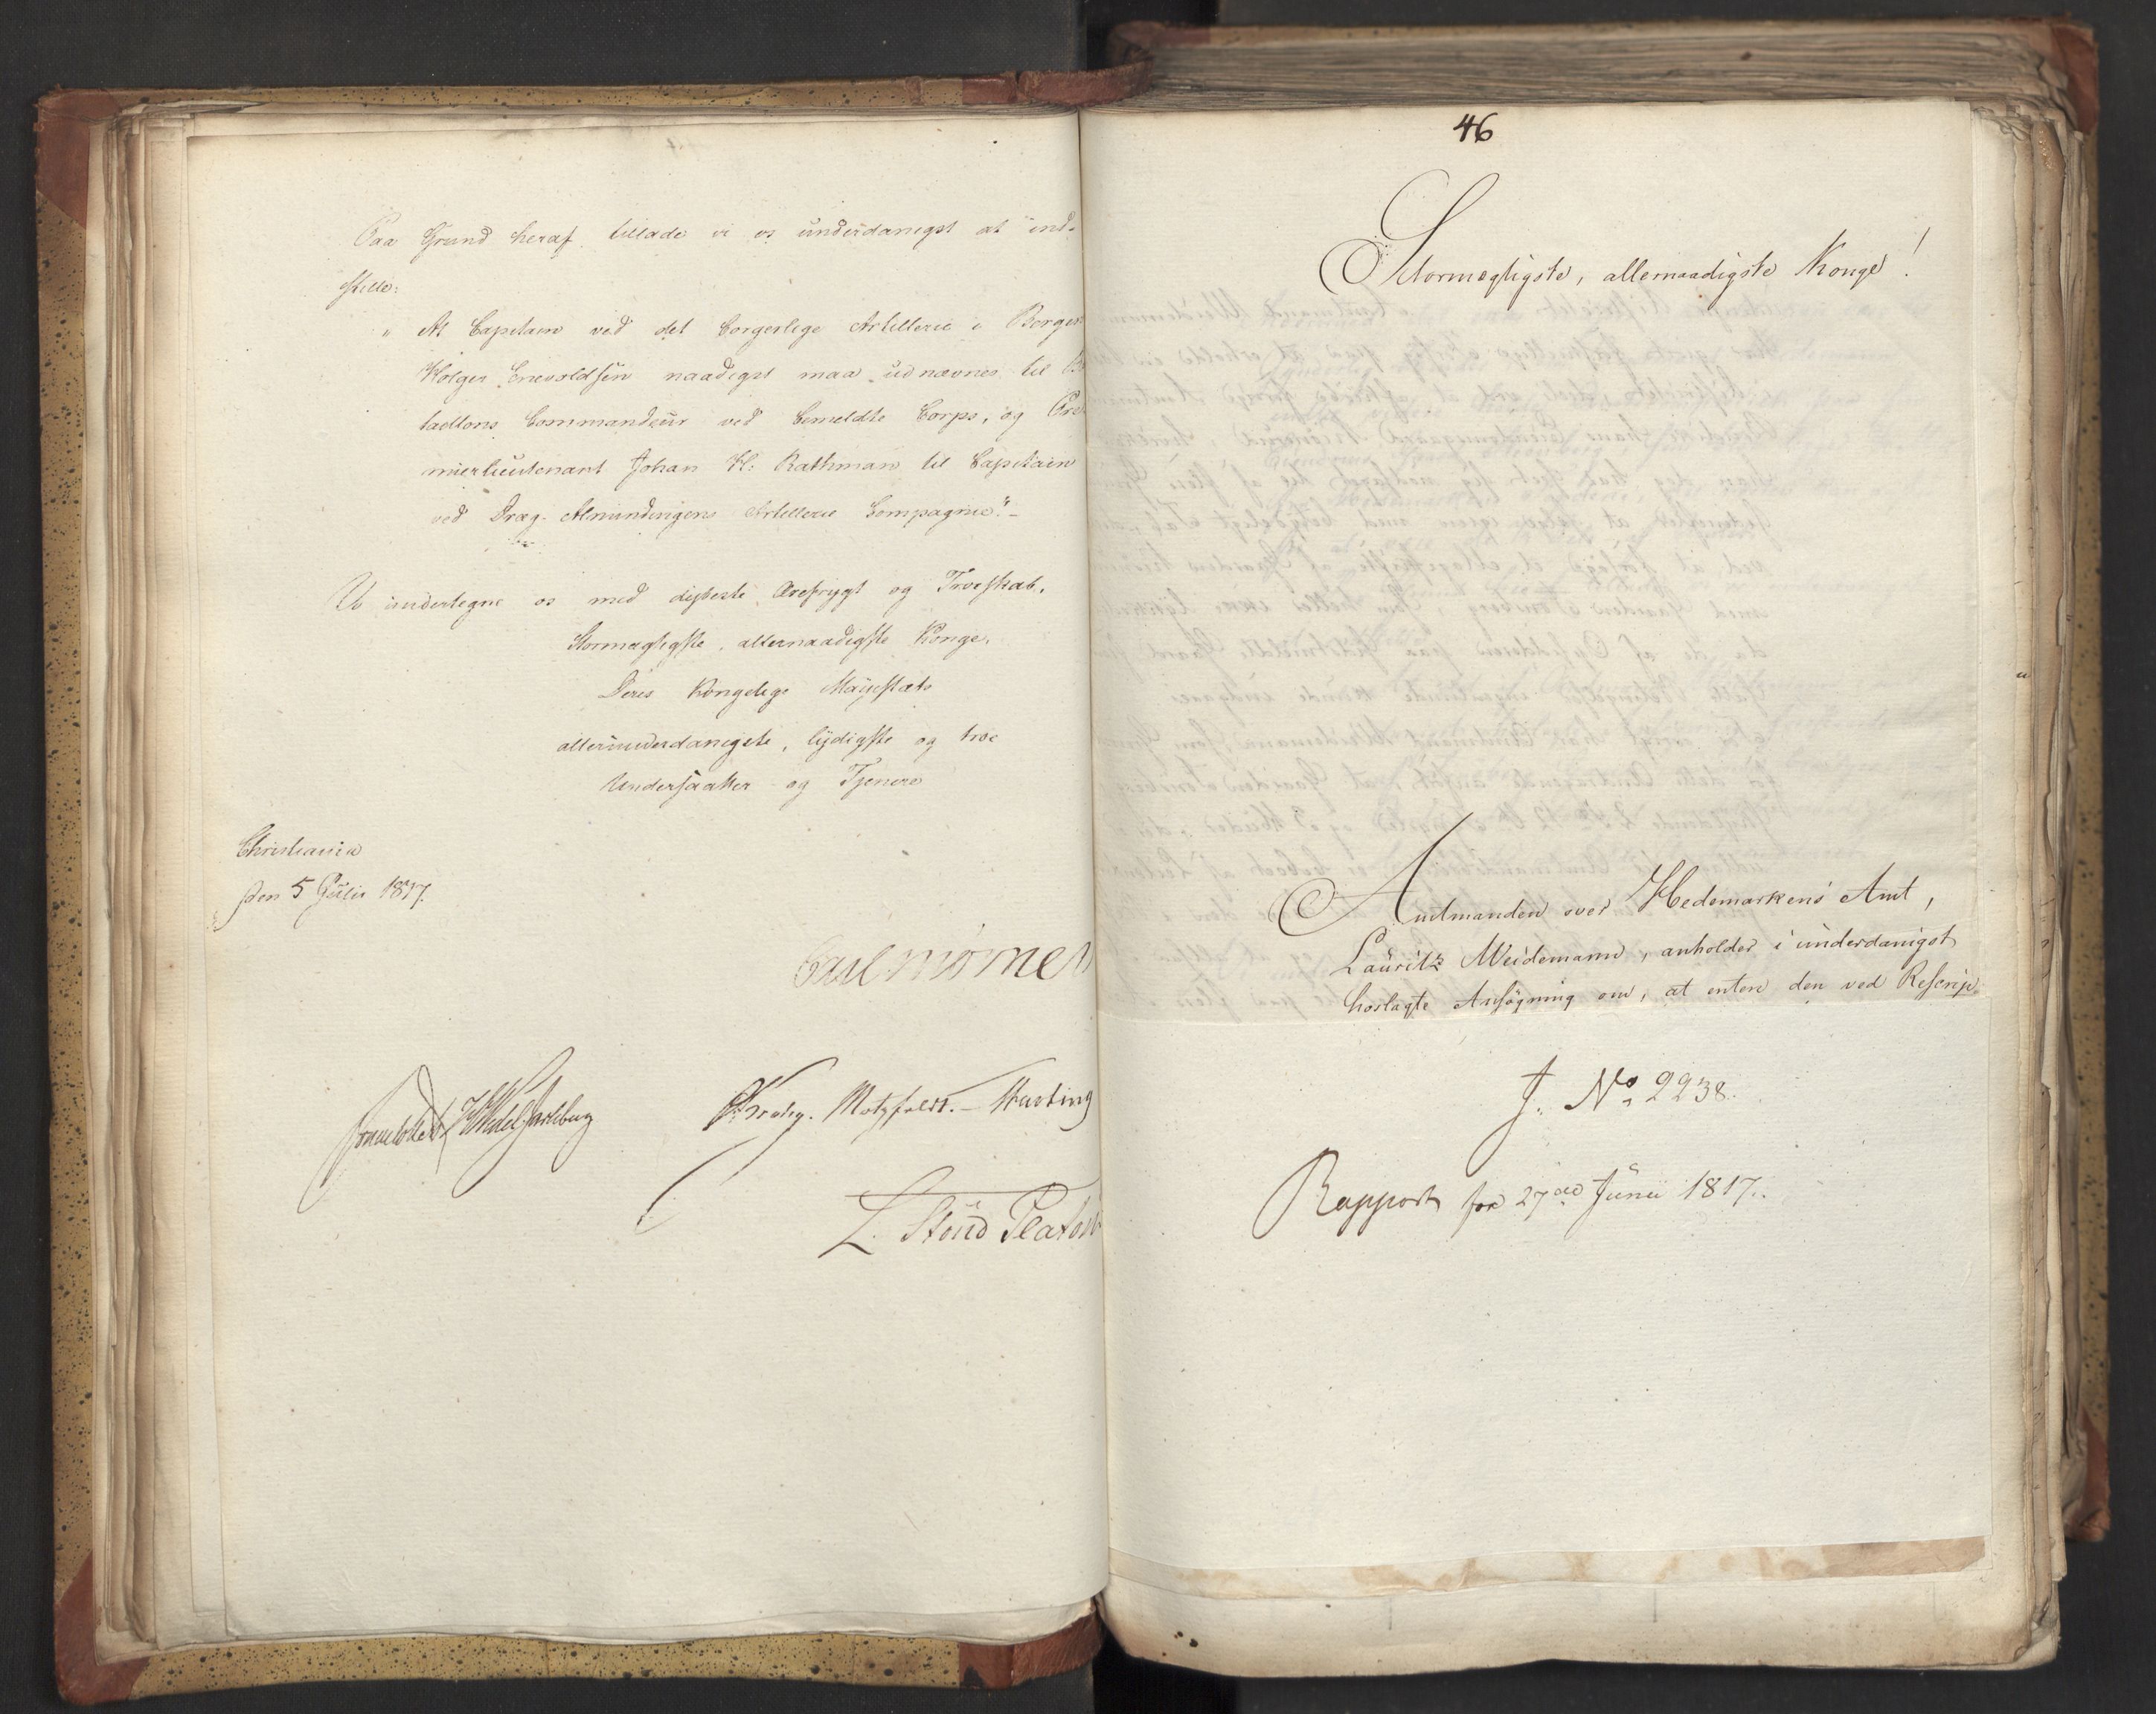 Paa Grund heraf tillade vi os underdanigst at ind-
stille:
" At Capitain ved det borgerlige Artillerie i Bergen
Holger Enevoldsen naadigst maa udnævnes til
taillons Commandeur ved bemeldte Corps, og Pre-
mierlieutenant Johan H: Rathman til Capitain
ved Dræg. Almindingens Artillerie Compagnie." -
Vi undertegne os med dybeste Ærefrygt og Troeskab,
Stormægtigste, allernaadigste Konge,
Deres Kongelige Majestæts
allerunderdanigste, lydigste og troe
Undersaatter og Tjenere
Christiania
den 5 Julii 1817.
Carl Mörner
Sommerhielm HWedel Jarlsberg
Krohg. Motzfeldt. - Hasting
L. Stoud Platou
46
Stormægtigste, allernaadigste Konge!
Amtmanden over Hedemarkens Amt,
Lauritz Weidemann, anholder i underdanigst
hoslagte Ansøgning om, at enten den ved Rescrip
J. No 2238.
Rapport for 27de Junii 1817.